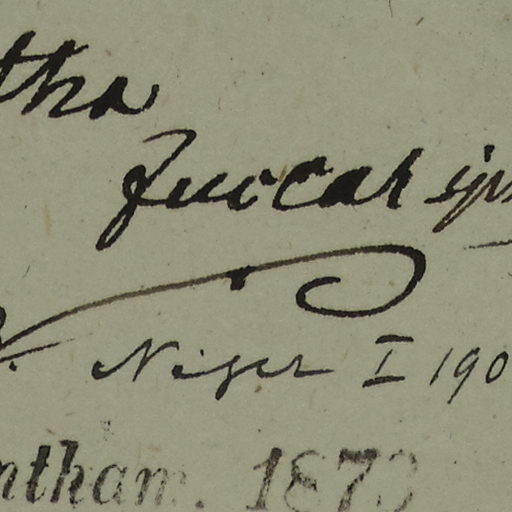 tha
Zuccar ips
Niger I 190
ntham. 1873